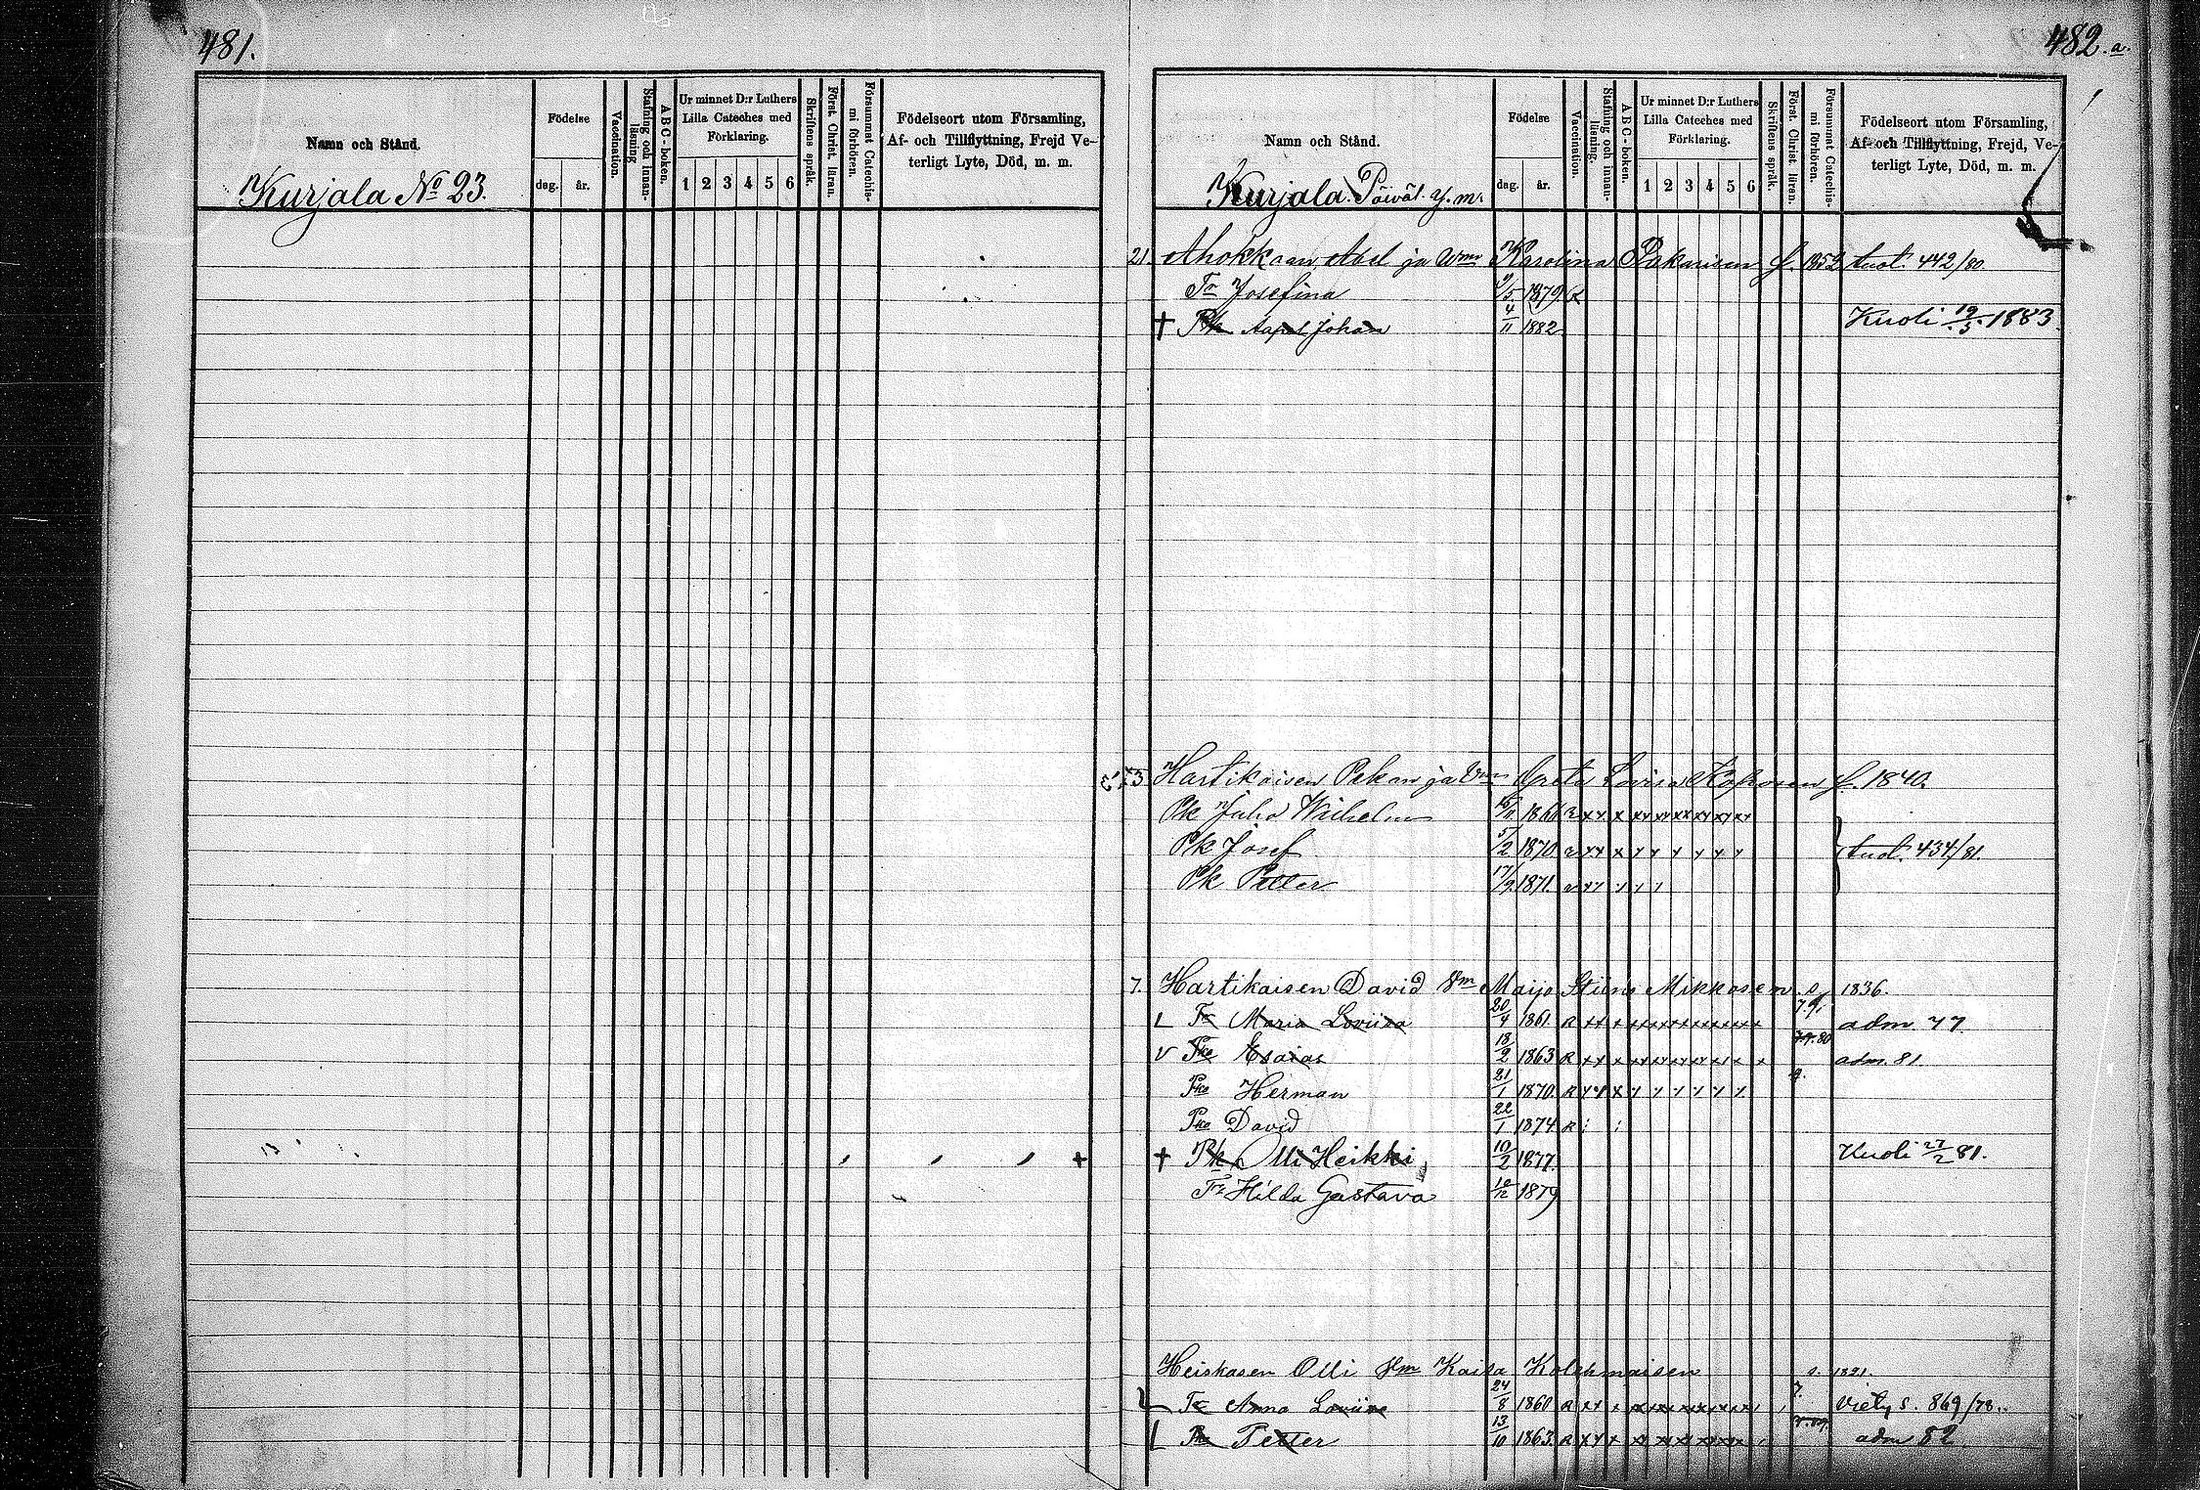 481.
Namn och Stånd.
Födelse
dag. år.
Vaccination.
Stafning och Innan-läsning
ABC-boken.
Ur minnet D:r Luthers Lilla Cateches med Förklaring.
1 2 3 4 5 6
Skriftens språk.
Först. Christ. läran.
Försummat Catechis-mi förhören.
Födelseort utom Församling, Af- och Tillflyttning, Frejd Ve-terligt Lyte, Död, m. m.
Kurjala No 23.
482.a.
Namn och Stånd.
Födelse
dag. år.
Vaccination.
Stafning och Innan-läsning.
ABC-boken.
Ur minnet D:r Luthers Lilla Cateches med Förklaring.
1 2 3 4 5 6
Skriftens språk.
Först. Christ. läran.
Försummat Catechis-mi förhören.
Födelseort utom Församling, Af- och Tillflyttning, Frejd, Ve-terligt Lyte, Död, m. m.
Kurjala. Päiväl. y. m.
21. Ahokkaan, Abel ja Wmo Karolina Pakarisen f. 1852 tuot. 442/80.
Tr Josefina /5 1879
† Pk Aapel Johan 4/11 1882 Kuoli 19/3 1883.
Hartikaisen Pekan ja Vmn Greta Lovisa Koposen f. 1840.
Pk Juho Wilhelm /11 1866
Pk Josef 5/2 1870
Pk Petter 17/9 1871.
tuot. 434/81.
7. Hartikaisen David Vm Maija Stiina Mikkosen s. 1836.
Tr Maria Loviisa 20/4 1861. R 7.9. adm. 77
v Pko Esaias 18/2 1863 R 80 adm. 81.
Pko Herman 21/1 1870. R
Pko David 22/1 1874 R
† Pk Olli Heikki 10/2 1877. Kuoli 27/2 81.
Tr Hilda Gustava 10/12 1879
Heiskasen Olli Vm Kaisa Kolehmaisen s. 1821.
Tr Anna Loviisa 24/8 1860 R 7. Viety s. 869/78.
Pko Petter 13/10 1863. R adm 82.